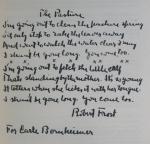 The Pasture
I'm going out to clean the pasture spring
I'll only stop to rake the leaves away
And wait to watch the water clear I may
I shan't be gone long. You come too.
x x x x x x
I'm going out to fetch the little calf
That's standing by the mother. It's so young
It totters when she licks it with her tongue
I shan't be gone long. You come too.
Robert Frost
For Earle Bernheimer